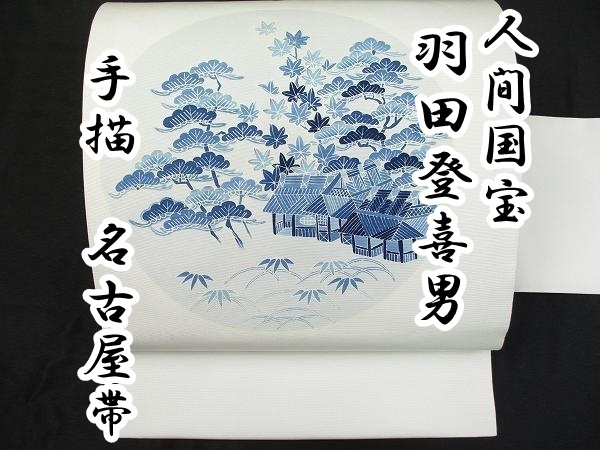 人間国宝
羽田登喜男
手描 名古屋帯